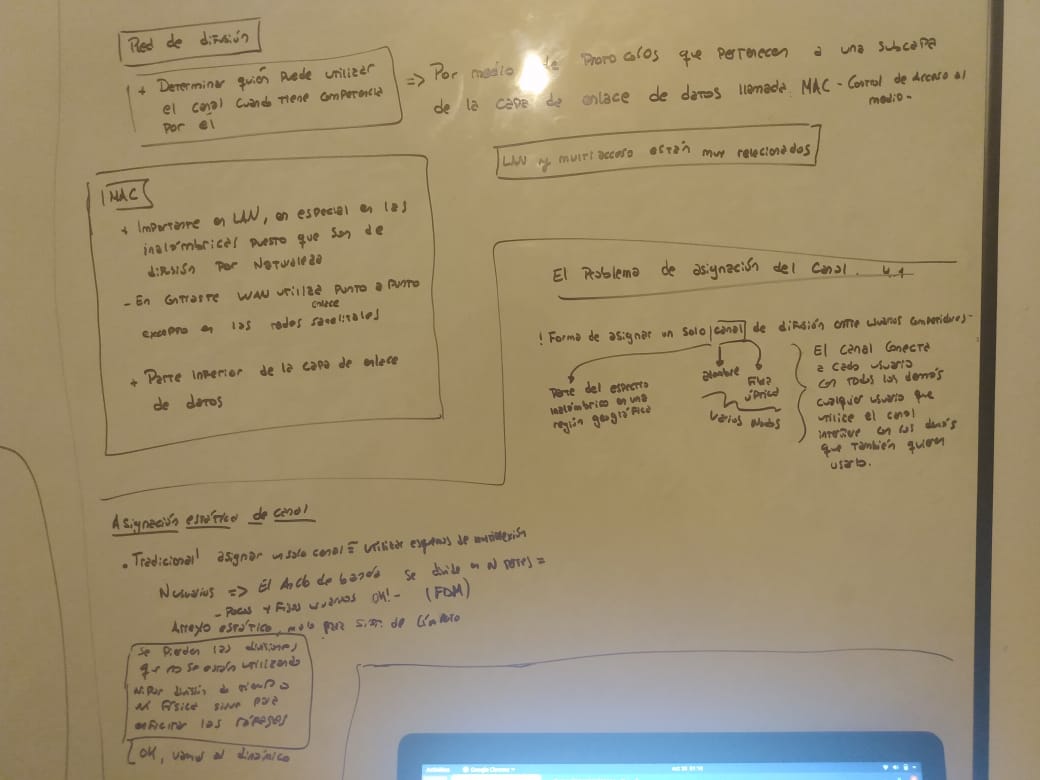 Red de difusión
+ Determinar quién puede utilizar
el canal cuando tiene competencia
por él
=> Por medio de Protocolos que pertenecen a una subcapa
de la capa de enlace de datos llamada MAC - Control de Acceso al
medio -
LAN y multiacceso están muy relacionados
MAC
+ Importante en LAN, en especial en las
inalámbricas puesto que son de
difusión por Naturaleza
- En contraste WAN utiliza punto a punto
enlace
excepto en las redes satelitales
+ Parte inferior de la capa de enlace
de datos
El Problema de asignación del Canal. 4.1
! Forma de asignar un solo canal de difusión entre usuarios competidores -
Parte del espectro
inalámbrico en una
región geográfica
alambre
Fibra
óptica
Varios Nodos
El canal conecta
a cada usuario
con todos los demás
cualquier usuario que
utilice el canal
interfiere con los demás
que también quieren
usarlo.
Asignación estática de canal
. Tradicional asignar un solo canal = utilizar esquemas de multiplexión
N usuarios => El Ancho de banda se divide en N partes =
- Pocos y Fijos usuarios OK! - (FDM)
Arreglo estático, malo para sist. de Cómputo
Se pierden las divisiones
que no se están utilizando
Ni Por división de tiempo o
Ni Física sirve para
las ráfagas
OK, vamos al dinámico
Activities
Google Chrome